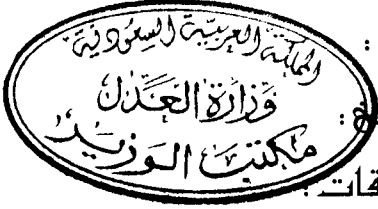 المملكة العربية السعودية
وزارة العدل
مكتب الوزير
:
:
قات :